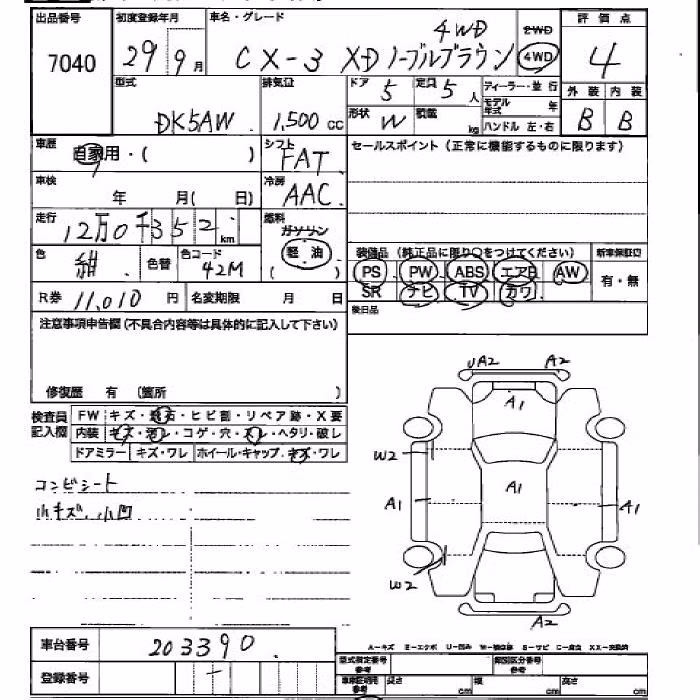 出品番号 初度登録年月 車名・グレード 評価点
7040 29 9月 CX-3 XD ノーブルブラウン 4WD 2WD 4WD 4
型式 排気量 ドア 5 定員 5人 ディーラー・並行 外装 内装
DK5AW 1,500cc 形状 W 積載 kg モデル年式 年 ハンドル 左・右 B B
車歴 自家用・( ) シフト FAT セールスポイント(正常に機能するものに限ります)
車検 年 月( 日) 冷房 AAC
走行 12万0千352 km 燃料 ガソリン 軽油 ( )
色 紺 色替 色コード 42M 装備品(純正品に限り○をつけてください) 新車保証書
PS PW ABS エアB AW 有・無
R券 11,010円 名変期限 月 日 SR ナビ TV カワ
注意事項申告欄(不具合内容等は具体的に記入して下さい) 後日品
修復歴 有 (箇所 )
検査員記入欄 FW キズ・飛石・ヒビ割・リペア跡・X要
内装 キズ・汚レ・コゲ・穴・スレ・ヘタリ・破レ
ドアミラー キズ・ワレ ホイール・キャップ キズ・ワレ
コンビシート
小キズ、小凹
UA2 A2
A1
W2
A1 A1 A1
W2
A2
A-キズ E-エクボ U-凹み W-補修跡 S-サビ C-腐食 XX-交換済
車台番号 203390
登録番号
型式指定番号 類別区分番号
車庫証明用参考 長さ cm 幅 cm 高さ cm